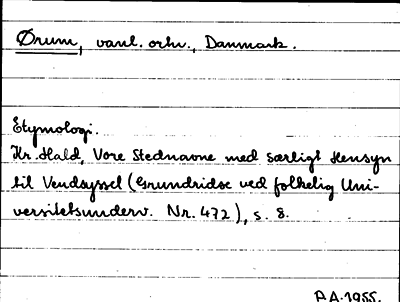 Ørum, vanl. orhv., Danmark.
Etymologi.
Kr. Hald, Vore Stednavne med særligt Hensyn
til Vendsyssel (Grundridse ved folkelig Uni-
versitetsunderv. Nr. 472), s. 8.
A.A. 1955.